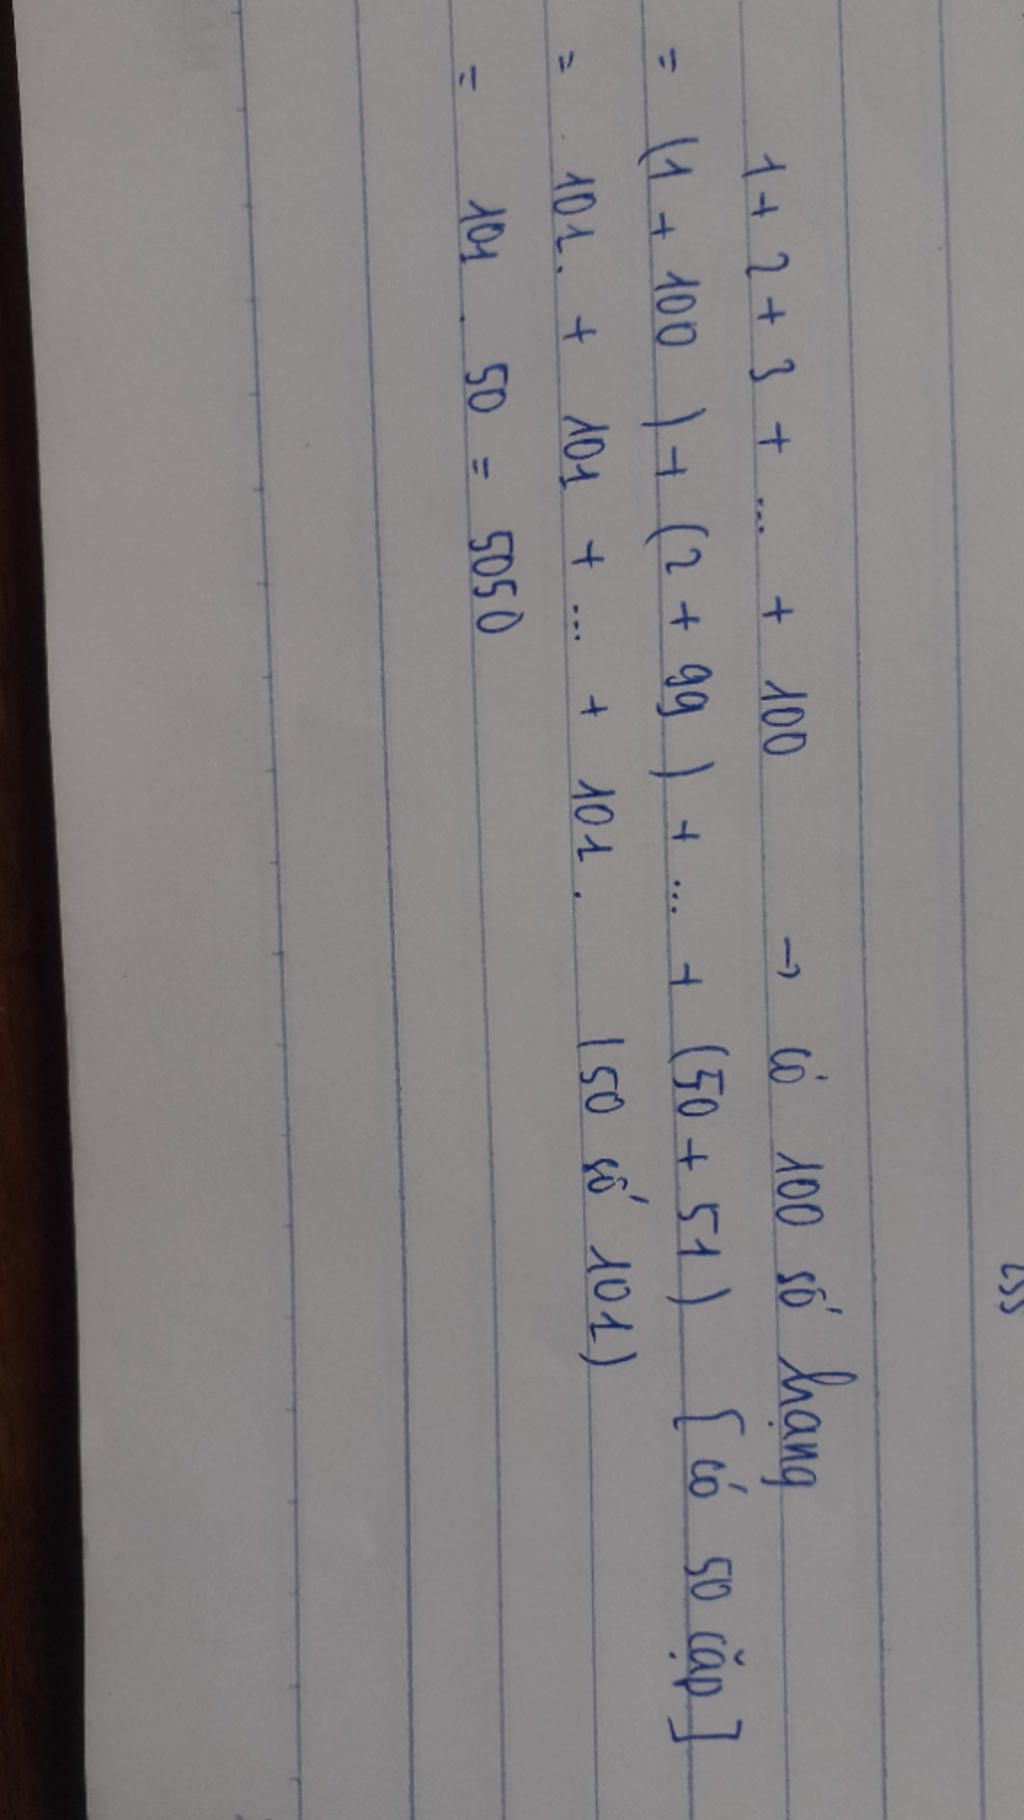 1 + 2 + 3 + ... + 100 → có 100 số hạng
= (1 + 100) + (2 + 99) + ... + (50 + 51) [có 50 cặp]
= 101. + 101 + ... + 101. (50 số 101)
= 101 . 50 = 5050